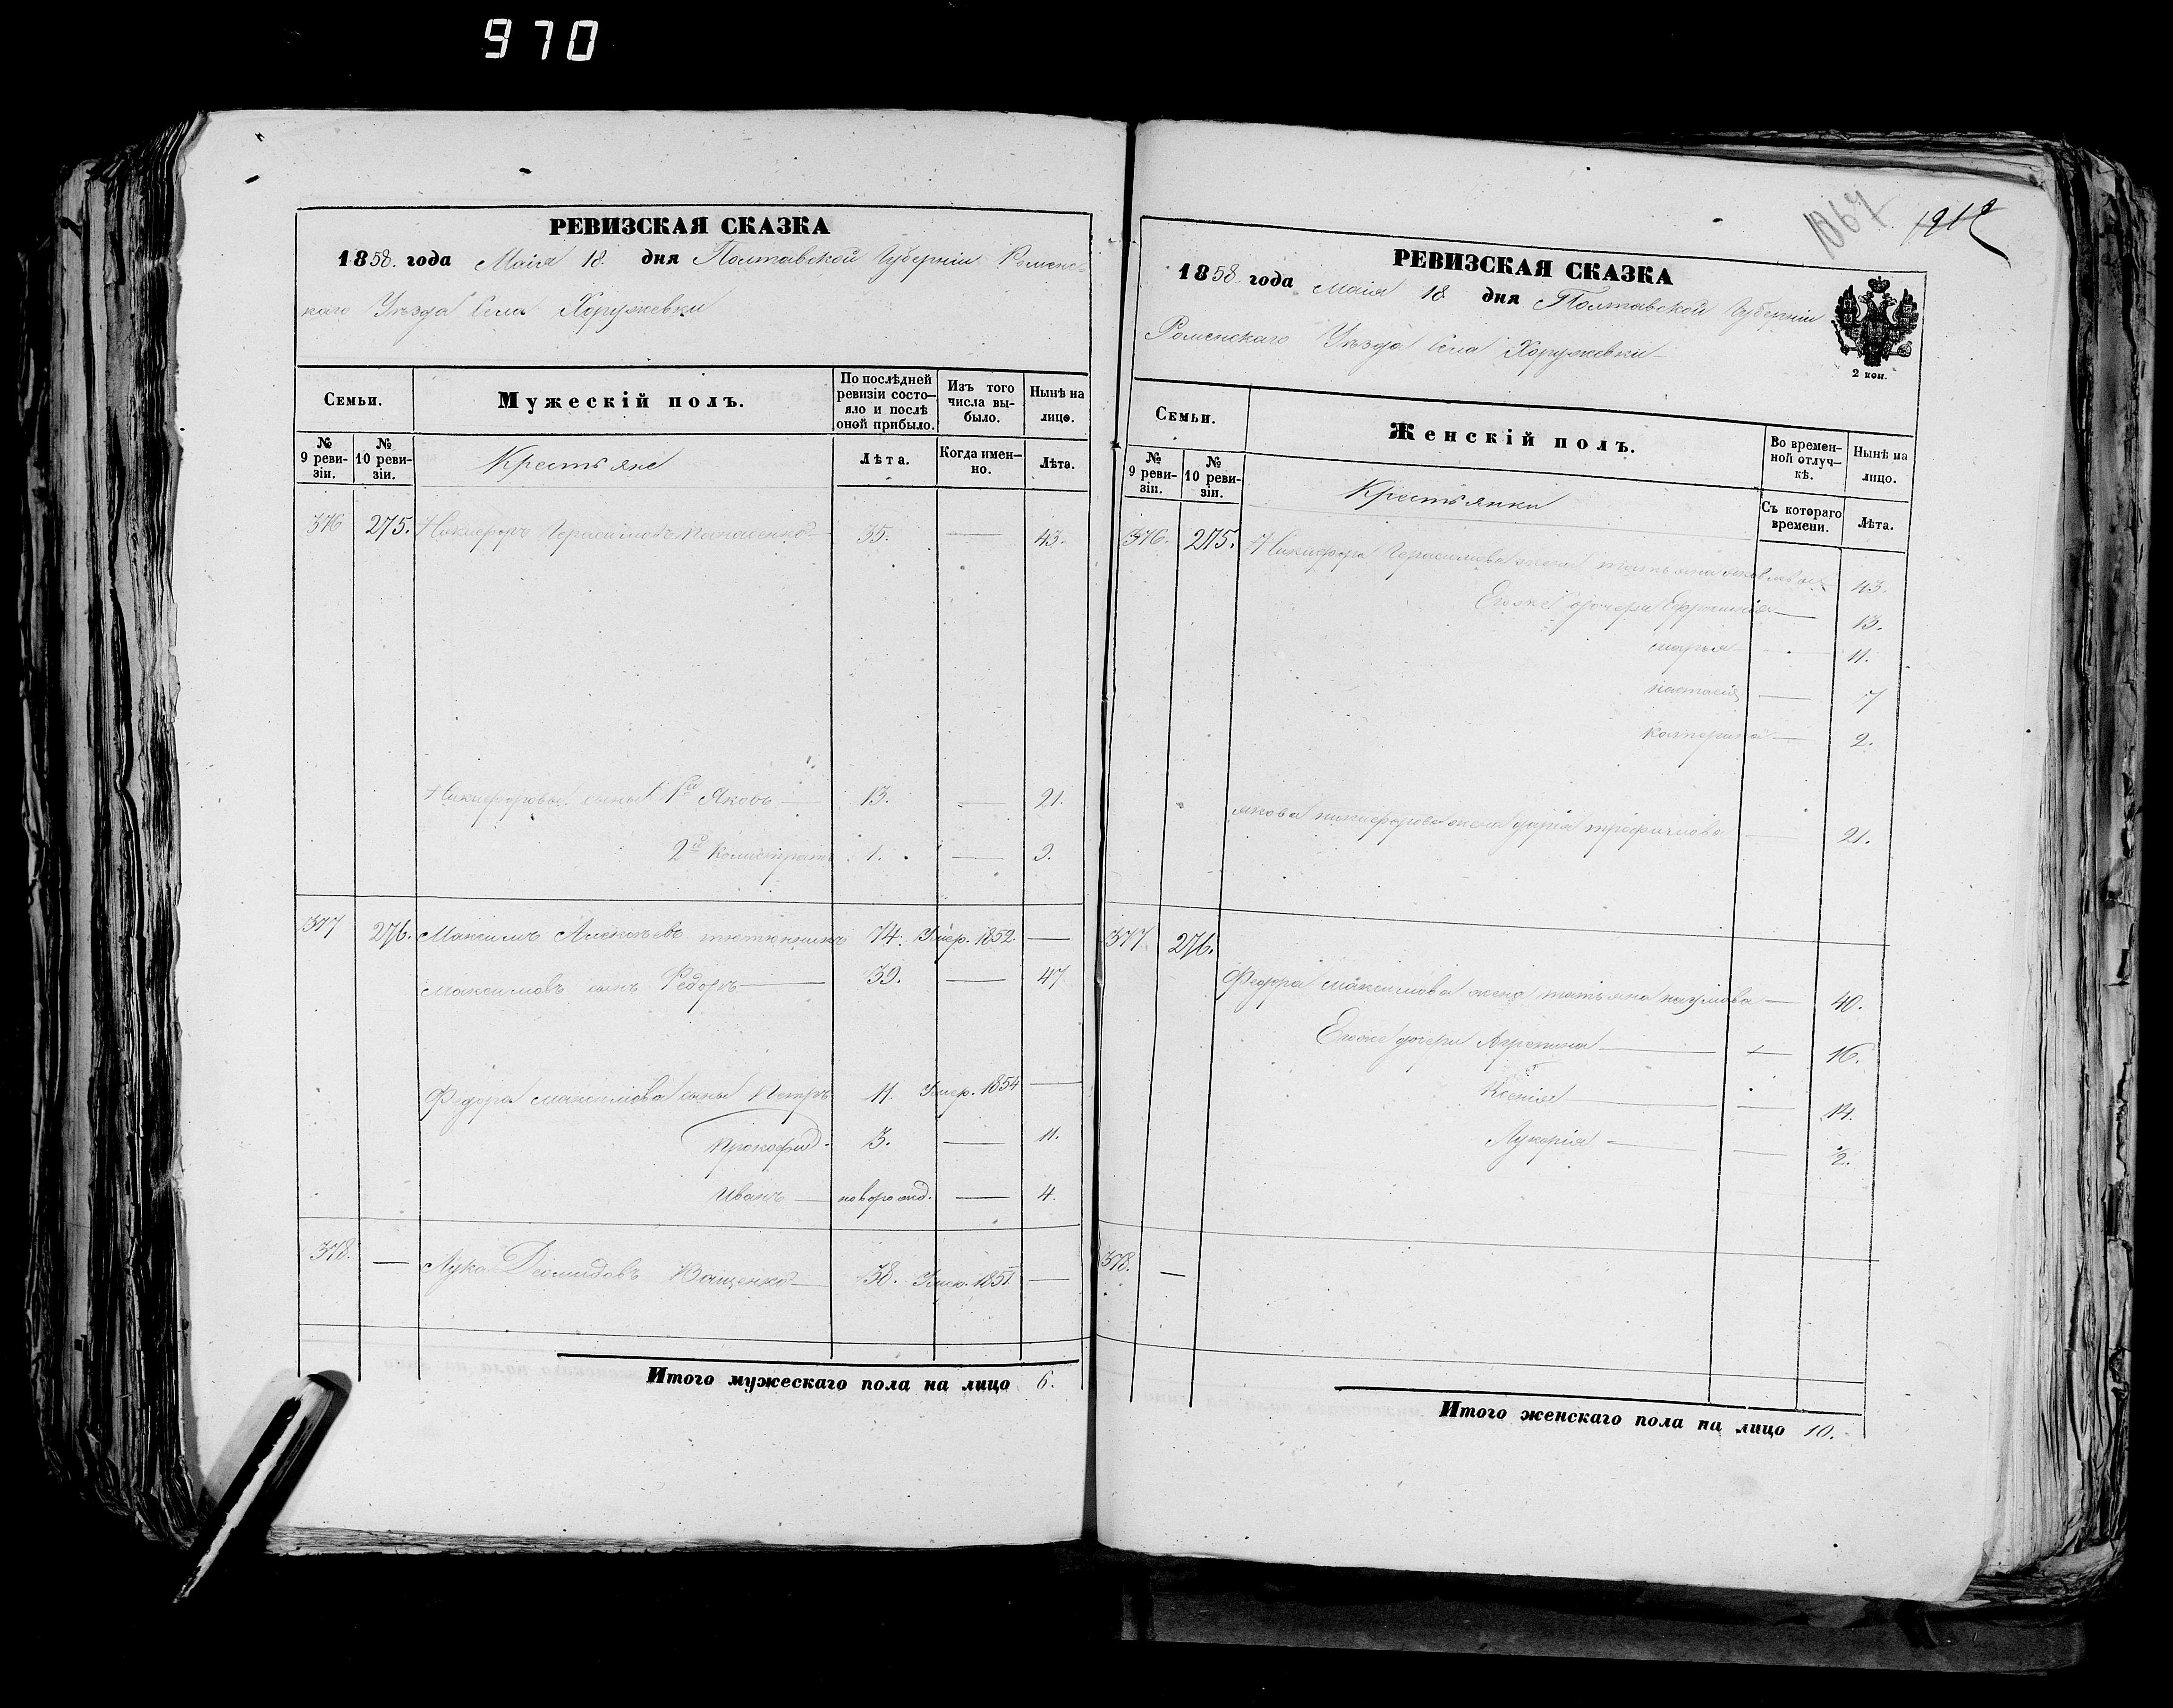 970
РЕВИЗСКАЯ СКАЗКА
1858. года Маія 18. дня Полтавской Губерніи Роменс-
каго Уѣзда Села Хоружевки
Семьи.
Мужескій полъ.
По послѣдней ревизіи состо-яло и послѣ оной прибыло.
Изъ того числа вы-было.
Нынѣ на лице.
№ 9 реви-зіи.
№ 10 реви-зіи.
Крестьяне
Лѣта.
Когда имен-но.
Лѣта.
376 275. Никифоръ Герасимовъ 35. — 43.
Никифоровы сыны 1й Яковъ — 13. — 21.
2й Калистратъ 1. — 9.
377 276. Максимъ Алексѣевъ тютюнникъ 74. Умер. 1852. —
Максимовъ сынъ Федоръ — 39. — 47
Федора Максимова сыны Петръ 11. Умер. 1854 —
Прокофий. 3. — 11.
Иванъ — новорожд. — 4.
378. — Лука Діомидовъ Иващенко — 38. Умер. 1851. —
Итого мужескаго пола на лицо 6.
1064
РЕВИЗСКАЯ СКАЗКА
1858. года Маія 18 дня Полтавской Губерніи
Роменскаго Уѣзда Села Хоружевки
2 коп.
Семьи.
Женскій полъ.
Во времен-ной отлуч-кѣ.
Нынѣ на лицо.
№ 9 реви-зіи.
№ 10 реви-зіи.
Крестьянки
Съ котораго времени.
Лѣта.
376. 275. Никифора Герасимова жена татьяна 43.
Егоже дочери Ефросинія — 13.
марья — 11.
настасія — 7
катерина — 2.
якова никифорова жена дарія трофимова — 21.
377. 276.
Федора максимова жена татьяна наумова — 40.
Егоже дочери Агрепина — 16.
Ксенія — 14.
Лукерія — 2.
378. —
Итого женскаго пола на лицо 10.